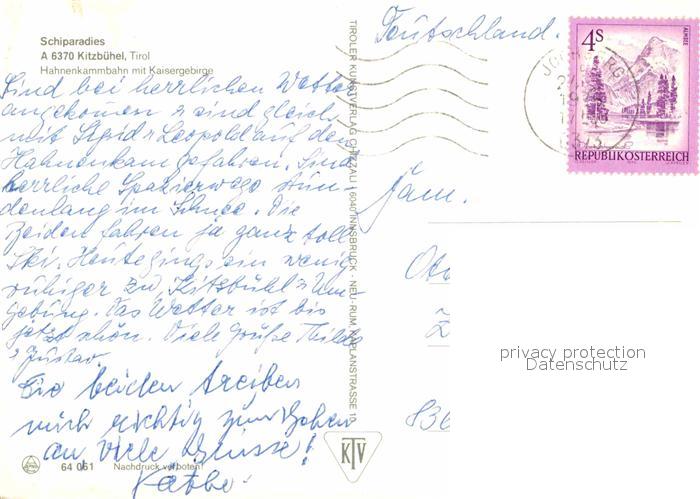 Schiparadies
A 6370 Kitzbühel, Tirol
Hahnenkammbahn mit Kaisergebirge
Sind bei herrlichen Wetter
angekomen u sind gleich
mit Sigrid u Leopold auf den
Hahnenkam gefahren. Sind
herrliche Spazierwege stun-
denlang im Schnee. Die
beiden fahren ja ganz toll
Ski. Heute gings ein wenig
ruhiger zu, Kitzbühl u Um-
gebung. Das Wetter ist bis
jetzt schön. Viele Grüße Thilde
u Gustav
Die beiden treiben
mich richtig zum Gehen
an, viele Grüsse!
64 061 Nachdruck verboten!
TIROLER KUNSTVERLAG CHIZZALI · 6040 INNSBRUCK - NEU-RUM, KAPLANSTRASSE 10
KTV
Deutschland.
4S
ALMSEE
REPUBLIK ÖSTERREICH
Fam.
836
privacy protection
Datenschutz